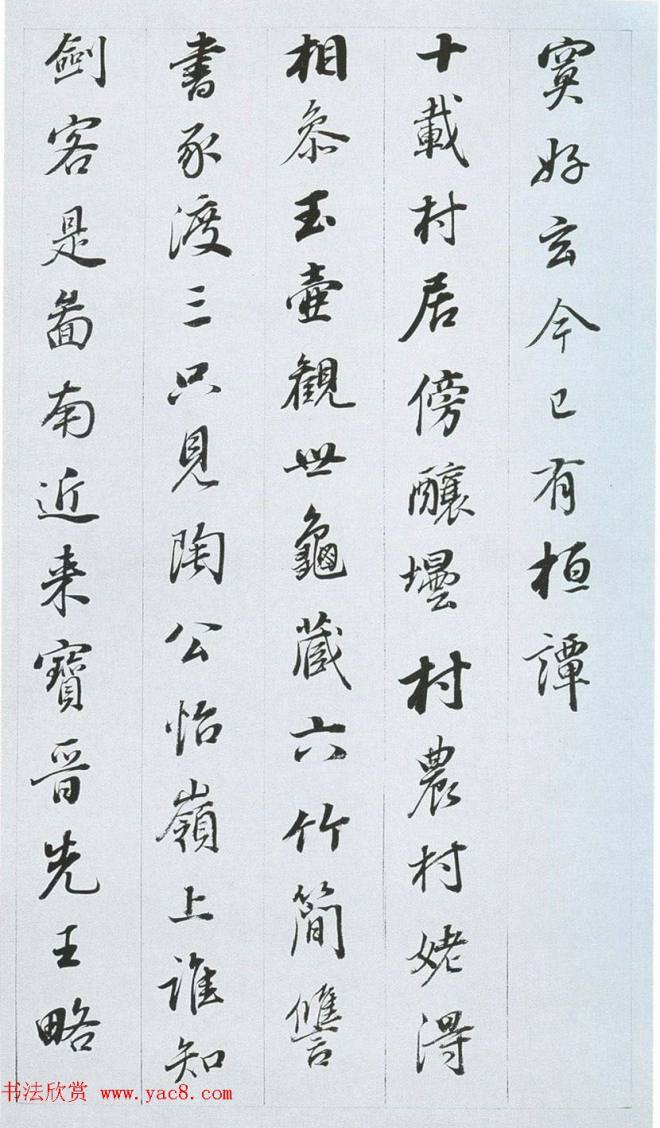 寞好玄今已有桓譚
十載村居傍釀壜村農村姥得
相叅玉壷觀世龜藏六竹簡讐
書豕渡三只見陶公怡嶺上誰知
劍客是啚南近来寶晉先王略
书法欣赏 www.yac8.com